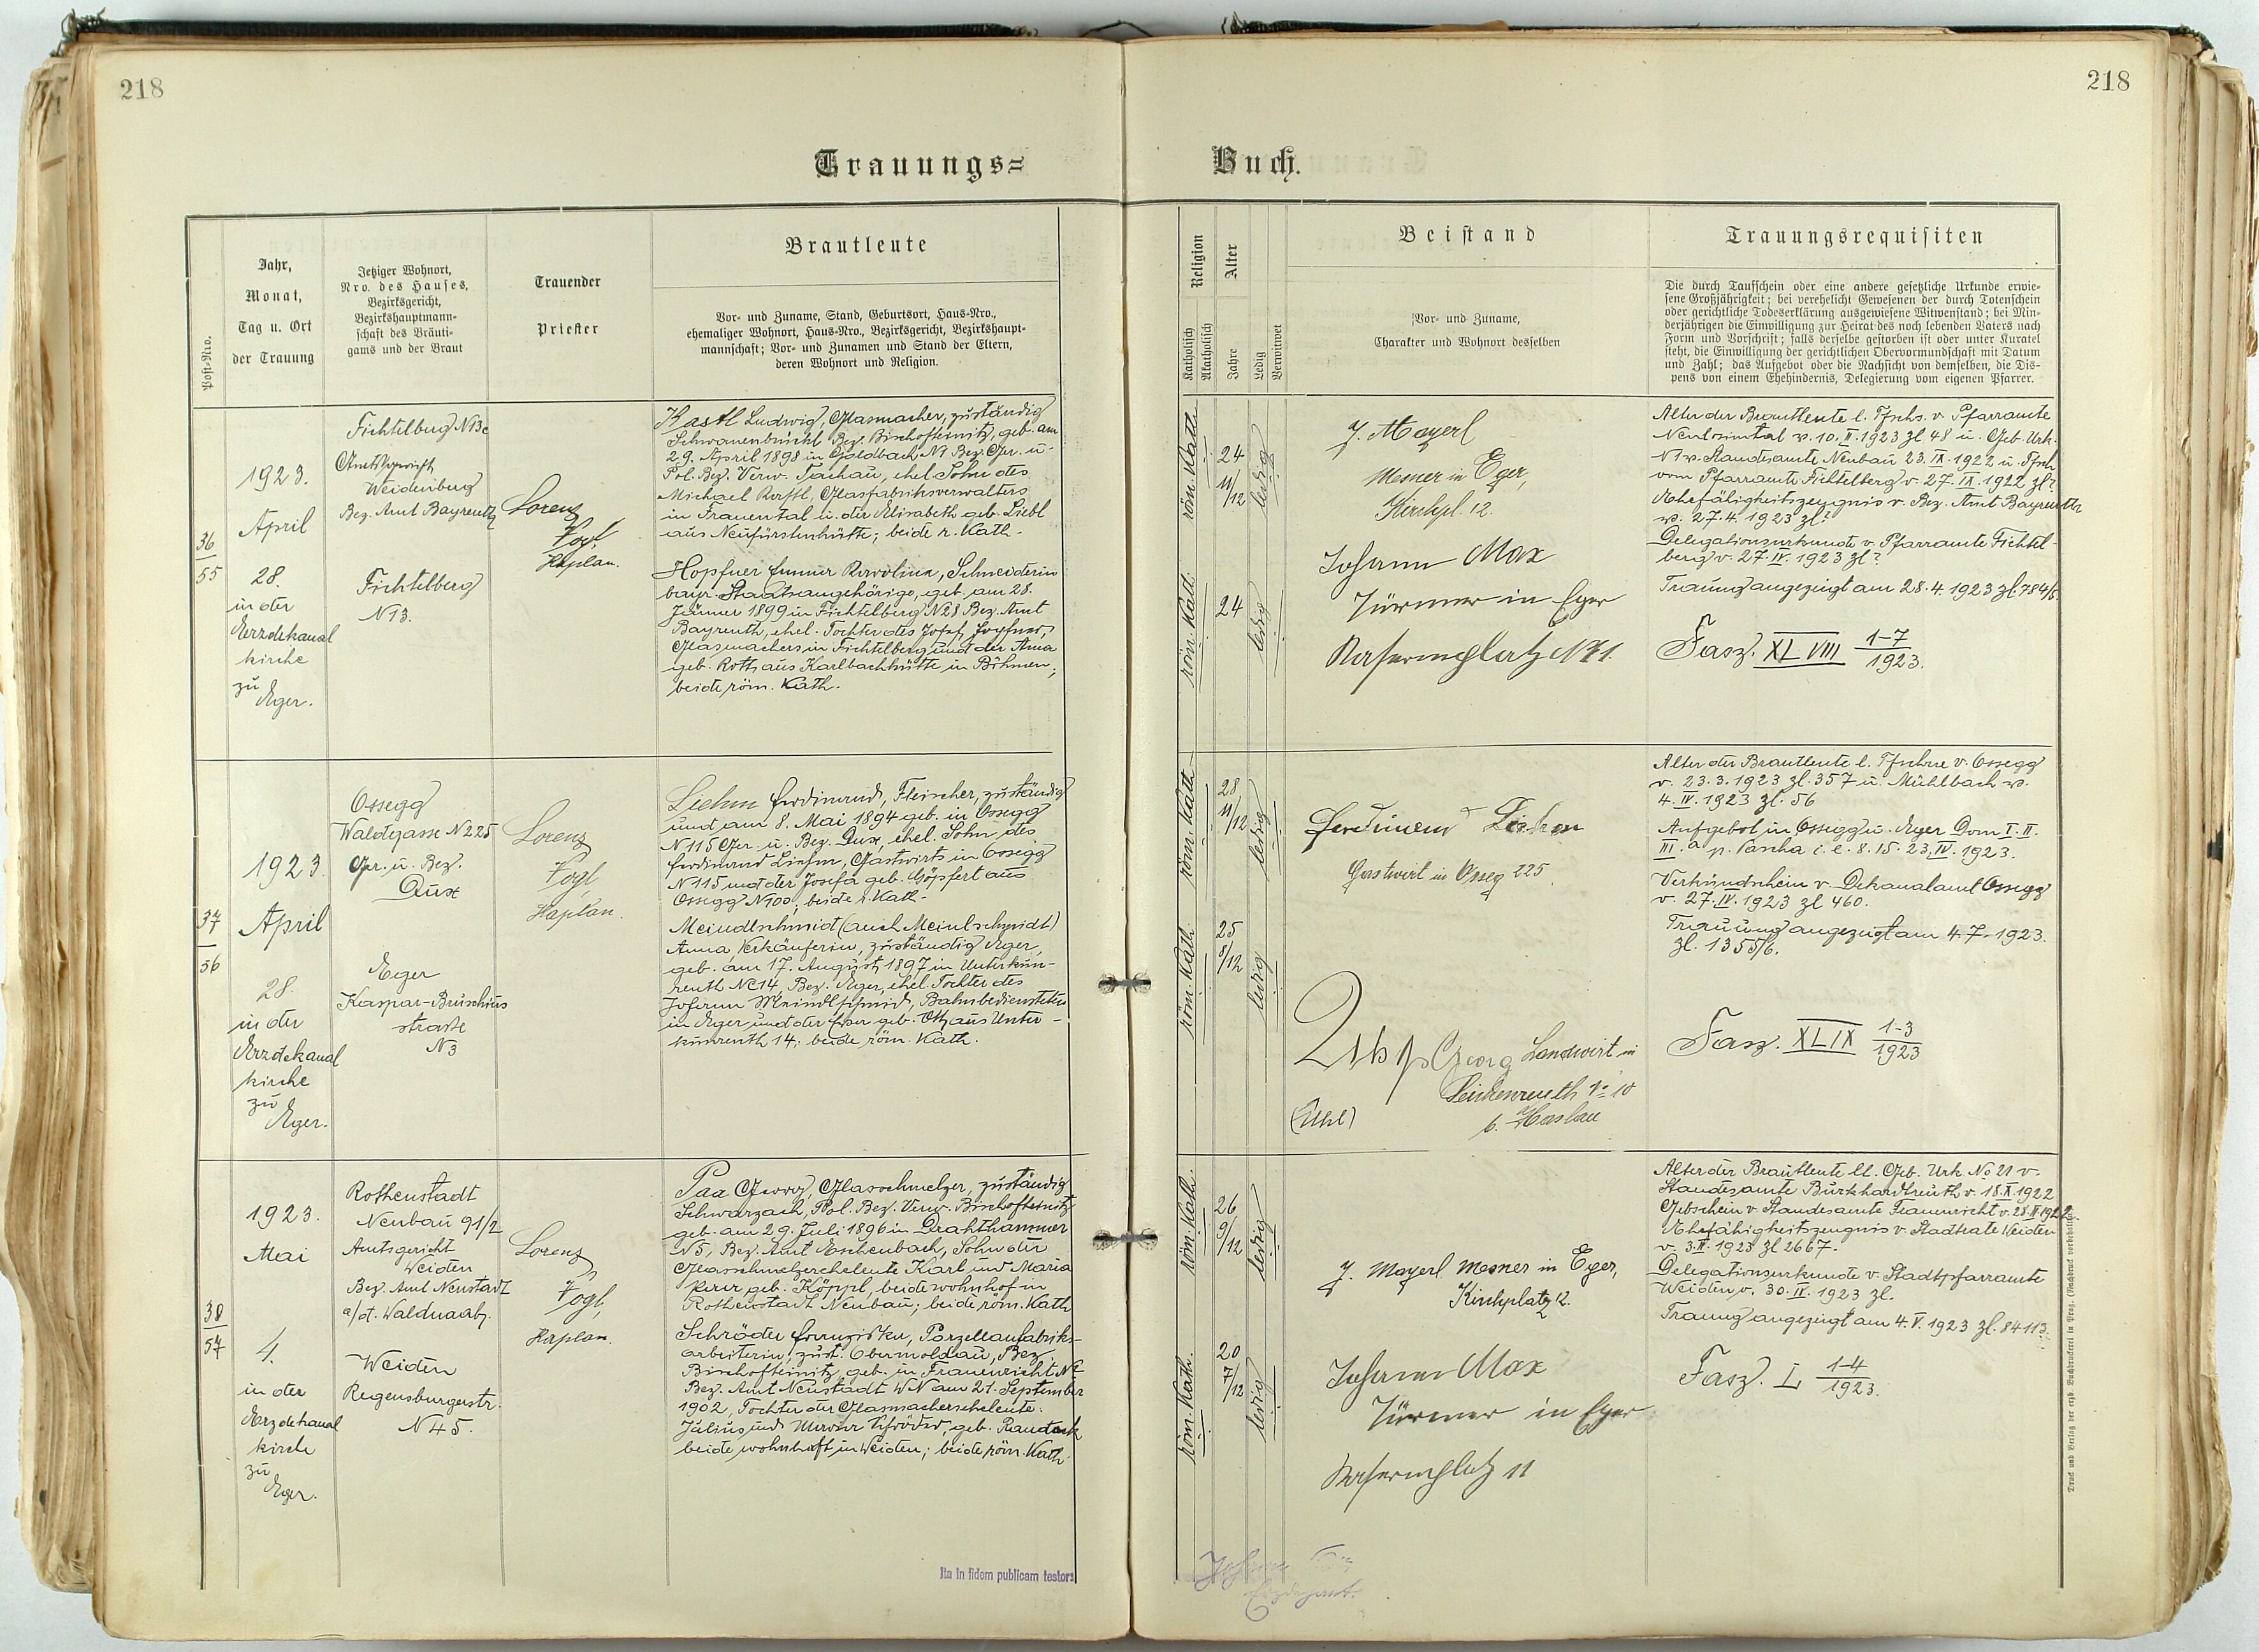 218
218
Trauungs=
Buch.
Post-Nro.
Jahr,
Monat,
Tag u. Ort
der Trauung
Jetziger Wohnort,
Nro. des Hauses,
Bezirksgericht,
Bezirkshauptmann-
schaft des Bräuti-
gams und der Braut
Trauender
Priester
Brautleute
Vor- und Zuname, Stand, Geburtsort, Haus-Nro.,
ehemaliger Wohnort, Haus-Nro., Bezirksgericht, Bezirkshaupt-
mannschaft; Vor- und Zunamen und Stand der Eltern,
deren Wohnort und Religion.
Religion
Katholisch
Akatholisch
Alter
Jahre
Ledig
Verwitwet
Beistand
Vor- und Zuname,
Charakter und Wohnort desselben
Trauungsrequisiten
Die durch Taufschein oder eine andere gesetzliche Urkunde erwie-
sene Großjährigkeit; bei verehelicht Gewesenen der durch Totenschein
oder gerichtliche Todeserklärung ausgewiesene Witwenstand; bei Min-
derjährigen die Einwilligung zur Heirat des noch lebenden Vaters nach
Form und Vorschrift; falls derselbe gestorben ist oder unter Kuratel
steht, die Einwilligung der gerichtlichen Obervormundschaft mit Datum
und Zahl; das Aufgebot oder die Nachsicht von demselben, die Dis-
pens von einem Ehehindernis, Delegierung vom eigenen Pfarrer.
36
55
1923.
April
28.
in der
Erzdekanal
kirche
zu
Eger.
Fichtelberg N13c
Amtsgericht
Weidenberg
Bez. Amt Bayreuth
Fichtelberg
N13.
Lorenz
Vogl,
Kaplan.
Kastl Ludwig, Glasmacher, zuständig
Schwanenbrückl Bez. Bischofteinitz, geb. am
29. April 1898 in Goldbach N1 Bez. Ger. u.
Pol. Bez. Verw. Tachau, ehel. Sohn des
Michael Kastl, Glasfabriksverwalters
in Frauental u. der Elisabeth geb. Liebl
aus Neufürstenhütte; beide r. Kath.
Hopfner Karolina, Schneiderin
bayr. Staatsangehörige, geb. am 28.
Jänner 1899 in Fichtelberg N28 Bez. Amt
Bayreuth, ehel. Tochter des Josef Hopfner,
Glasmachers in Fichtelberg und der Anna
geb. Roth aus Karlbachhütte in Böhmen;
beide röm. Kath.
röm. Kath.
24
11/12
ledig
röm. Kath.
24
ledig
J. Mayerl
Mesner in Eger,
Kirchpl. 12.
Johann Max
Türmer in Eger
Alter der Brautleute l. Tfschs. v. Pfarramte
Neulosimtal v. 10. II. 1923 zl 48 u. Geb. Urk.
N1 v. Standesamte Neubau 23. IX. 1922 u. Tfsch
vom Pfarramte Fichtelberg v. 27. IX. 1922 zl?
Ehefähigkeitszeugnis v. Bez. Amt Bayreuth
v. 27. 4. 1923 zl?
Delegationsurkunde v. Pfarramte Fichtel-
berg v. 27. IV. 1923 zl?
Trauung angezeigt am 28. 4. 1923 zl. 784/5
Fasz. XLVIII 1-7
1923.
37
56
1923.
April
28.
in der
Erzdekanal
kirche
zu
Eger.
Ossegg
Waldgasse N225
Ger. u. Bez.
Dux
Eger
Kaspar-Bruschius
strasse
N3
Lorenz
Vogl,
Kaplan.
Liehm Ferdinand, Fleischer, zuständig
und am 8. Mai 1894 geb. in Ossegg
N115 Ger. u. Bez. Dux, ehel. Sohn des
Ferdinand Liehm, Gastwirts in Ossegg
N115 und der Josefa geb. Göpfert aus
Ossegg N100; beide r. Kath.
Meindlschmidt (auch Meinlschmidt)
Anna, Verkäuferin, zuständig Eger,
geb. am 17. August 1897 in Unterkun-
reuth N14, Bez. Eger, ehel. Tochter des
Johann Meindlschmidt, Bahnbediensteten
in Eger und der Eva geb. Ott aus Unter-
kunreuth 14; beide röm. Kath.
röm. Kath.
28
11/12
ledig
röm. Kath.
25
8/12
ledig
Gastwirt in Osseg 225
Georg Landwirt in
No 10
b. Haslau
(Uhl)
Alter der Brautleute l. Tfschne v. Ossegg
v. 23. 3. 1923 zl. 357 u. Mühlbach v.
4. IV. 1923 zl. 56
Aufgebot in Ossegg u. Eger Dom I. II.
III. a p. Pascha i. e. 8. 15. 23. IV. 1923.
Verkündschein v. Dekanalamt Ossegg
v. 27. IV. 1923 zl 460.
Trauung angezeigt am 4. 7. 1923.
zl. 1355/6.
Fasz. XLIX 1-3
1923
38
57
1923.
Mai
4.
in der
Erzdekanal
kirche
zu
Eger.
Rothenstadt
Neubau 91/2
Amtsgericht
Weiden
Bez. Amt Neustadt
a/d. Waldnaab.
Weiden
Regensburgerstr.
N45.
Lorenz
Vogl,
Kaplan.
Paa Georg, Glasschmelzer, zuständig
Schwarzach, Pol. Bez. Verw. Bischofteinitz
geb. am 29. Juli 1896 in Drahthammer
N5, Bez. Amt Eschenbach, Sohn der
Glasschmelzereheleute Karl und Maria
Paa geb. Köppl, beide wohnhof in
Rothenstadt Neubau; beide röm. Kath
Schröder Franziska, Porzellanfabriks-
arbeiterin, zust. Obermoldau, Bez.
Bischofteinitz, geb. in Frauenricht No
Bez. Amt Neustadt WN am 21. September
1902, Tochter der Glasmacherseheleute:
Julius und Schröder, geb.
beide wohnhaft in Weiden; beide röm. Kath.
röm. Kath.
26
9/12
ledig
röm. Kath.
20
7/12
ledig
J. Mayerl Mesner in Eger,
Kirchplatz 12.
Johann Max
Türmer in Eger
11
Alter der Brautleute ll. Geb. Urk No 21 v.
Standesamte Burkhardtreuth v. 18. X. 1922
Gebschein v. Standesamte Frauenricht v. 28.
Ehefähigkeitszeugnis v. Stadtrate Weiden
1923 zl 2667.
Delegationsurkunde v. Stadtpfarramte
Weiden v. 30. IV. 1923 zl.
Trauung angezeigt am 4. V. 1923 zl.
Fasz. L 1-4
1923.
Ita in fidem publicam testor:
Erzdechant.